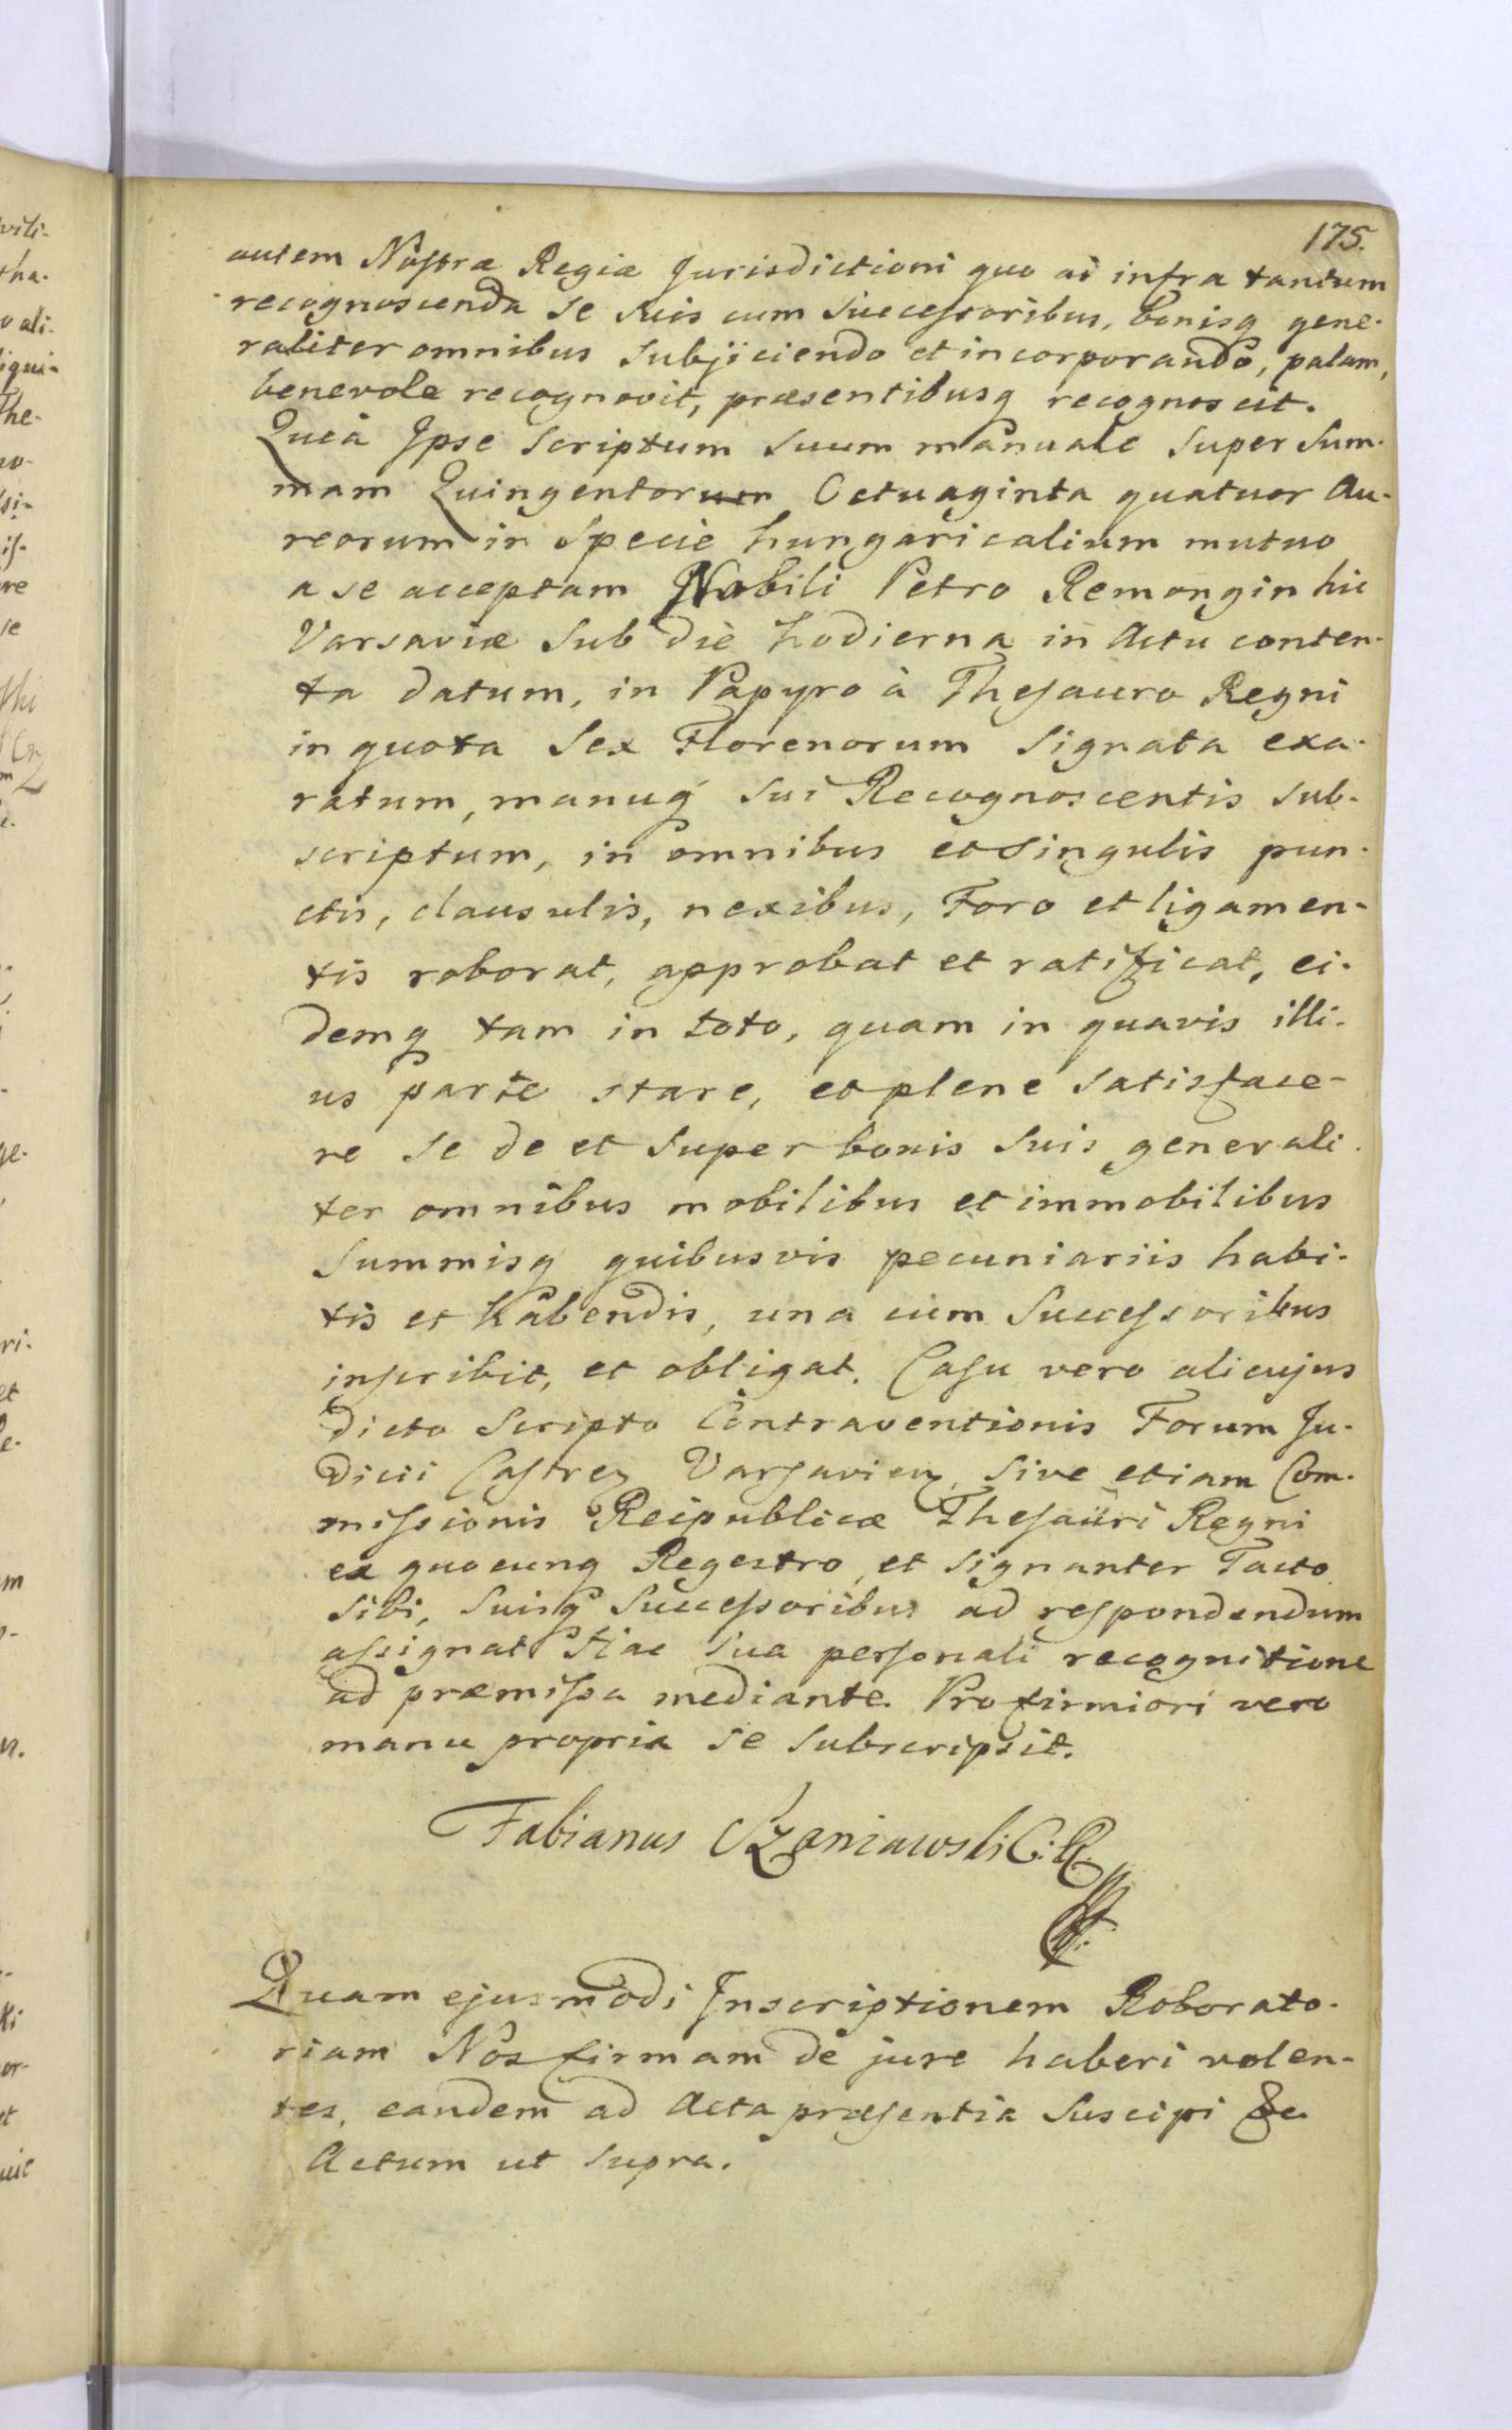 175.
autem Nostræ Regiæ Jurisdictioni quo ad infra tantum
recognoscenda se suis cum successoribus, bonisq gene-
raliter omnibus subjiciendo et incorporando, palam,
benevole recognovit, præsentibusq recognoscit.
Quia Ipse Scriptum suum manuale super Sum-
mam Quingentorum Octuaginta quatuor Au-
reorum in Specie hungaricalium mutuo
a se acceptam Nobili Petro Remongin hic
Varsaviæ sub die hodierna in Actu conten-
ta datum, in Papyro à Thesauro Regni
in quota Sex Florenorum signata exa-
ratum, manuq sui Recognoscentis sub-
scriptum, in omnibus et singulis pun-
ctis, clausulis, nexibus, Foro et ligamen-
tis roborat, approbat et ratificat, ei-
demq tam in toto, quam in quavis illi-
us parte stare, et plene satisface-
re se de et super bonis suis generali-
ter omnibus mobilibus et immobilibus
Summisq quibusvis pecuniariis habi-
tis et habendis, una cum Successoribus
inscribit, et obligat. Casu vero alicujus
dicto Scripto Contraventionis Forum Ju-
dicii Castren Varsavien, sive etiam Com-
missionis Reipublicæ Thesauri Regni
ex quocunq Regestro, et signanter Tacto
sibi, suisq Successoribus ad respondendum
assignat Hac sua personali recognitione
ad præmissa mediante. Pro firmiori vero
manu propria se subscripsit.
Fabianus Szaniawski C: R.
Quam ejusmodi Inscriptionem Roborato-
riam Nos firmam de jure haberi volen-
tes, eandem ad Acta præsentia suscipi &c
Actum ut supra.